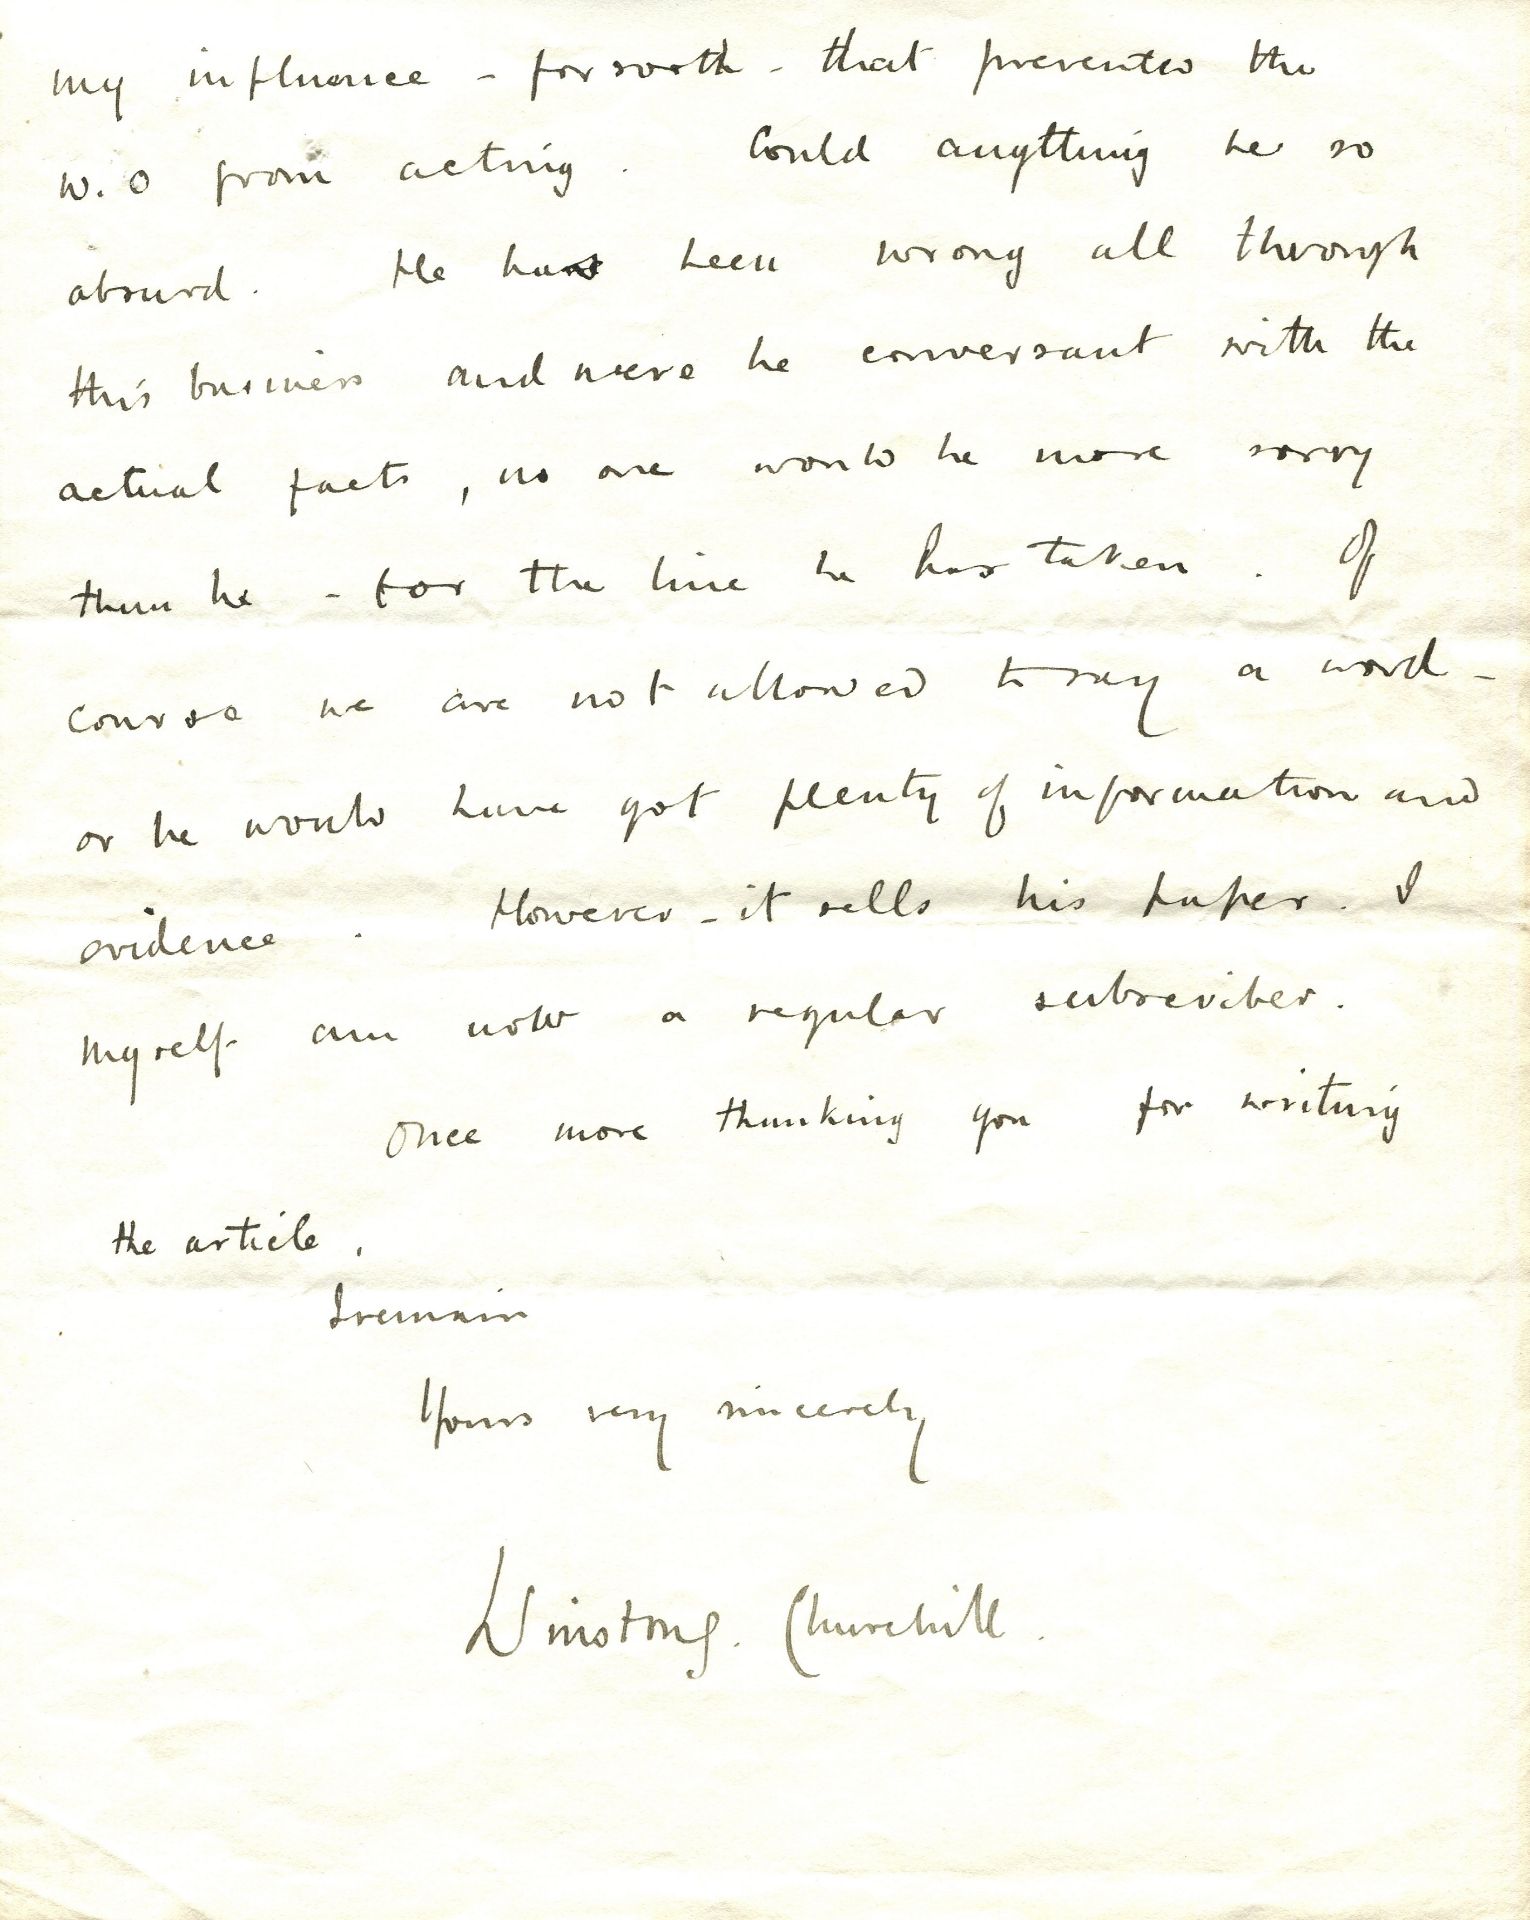 my influence - forsooth - that prevented the
W.O from acting. Could anything be so
absurd. He has been wrong all through
this business and were he conversant with the
actual facts, no one would be more sorry
than he - for the line he has taken. Of
course we are not allowed to say a word -
or he would have got plenty of information and
evidence. However - it sells his paper. I
myself am now a regular subscriber.
Once more thanking you for writing
the article,
I remain
Yours very sincerely
Winston S. Churchill.